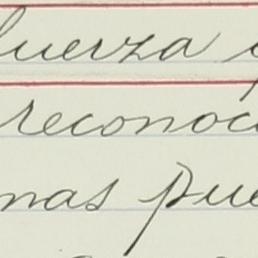 fuerza
reconoc
nas pue